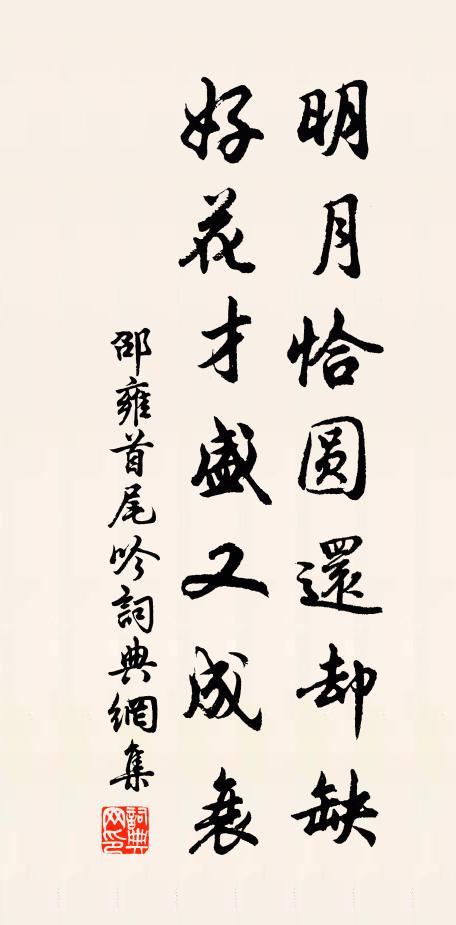 明月恰圆還却缺
好花才盛又成衰
邵雍首尾吟詞典網集
詞典網印